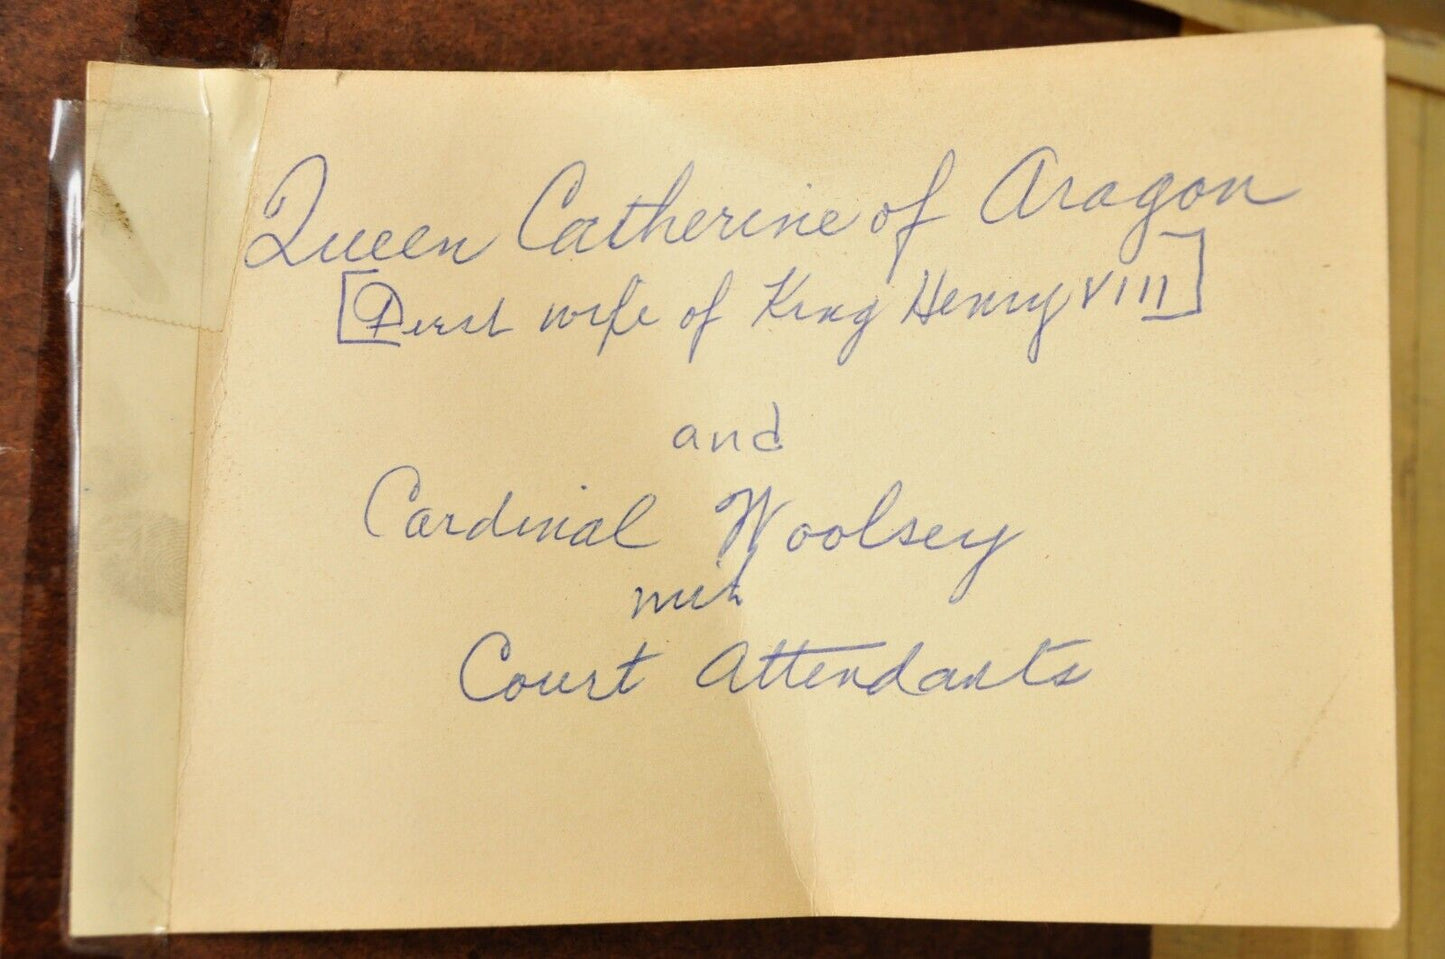 Queen Catherine of Aragon
[First wife of King Henry VIII]
and
Cardinal Woolsey
with
Court Attendants